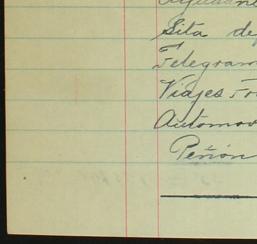 Sita de
Telegram
Viajes Fr
Automov
Peñón